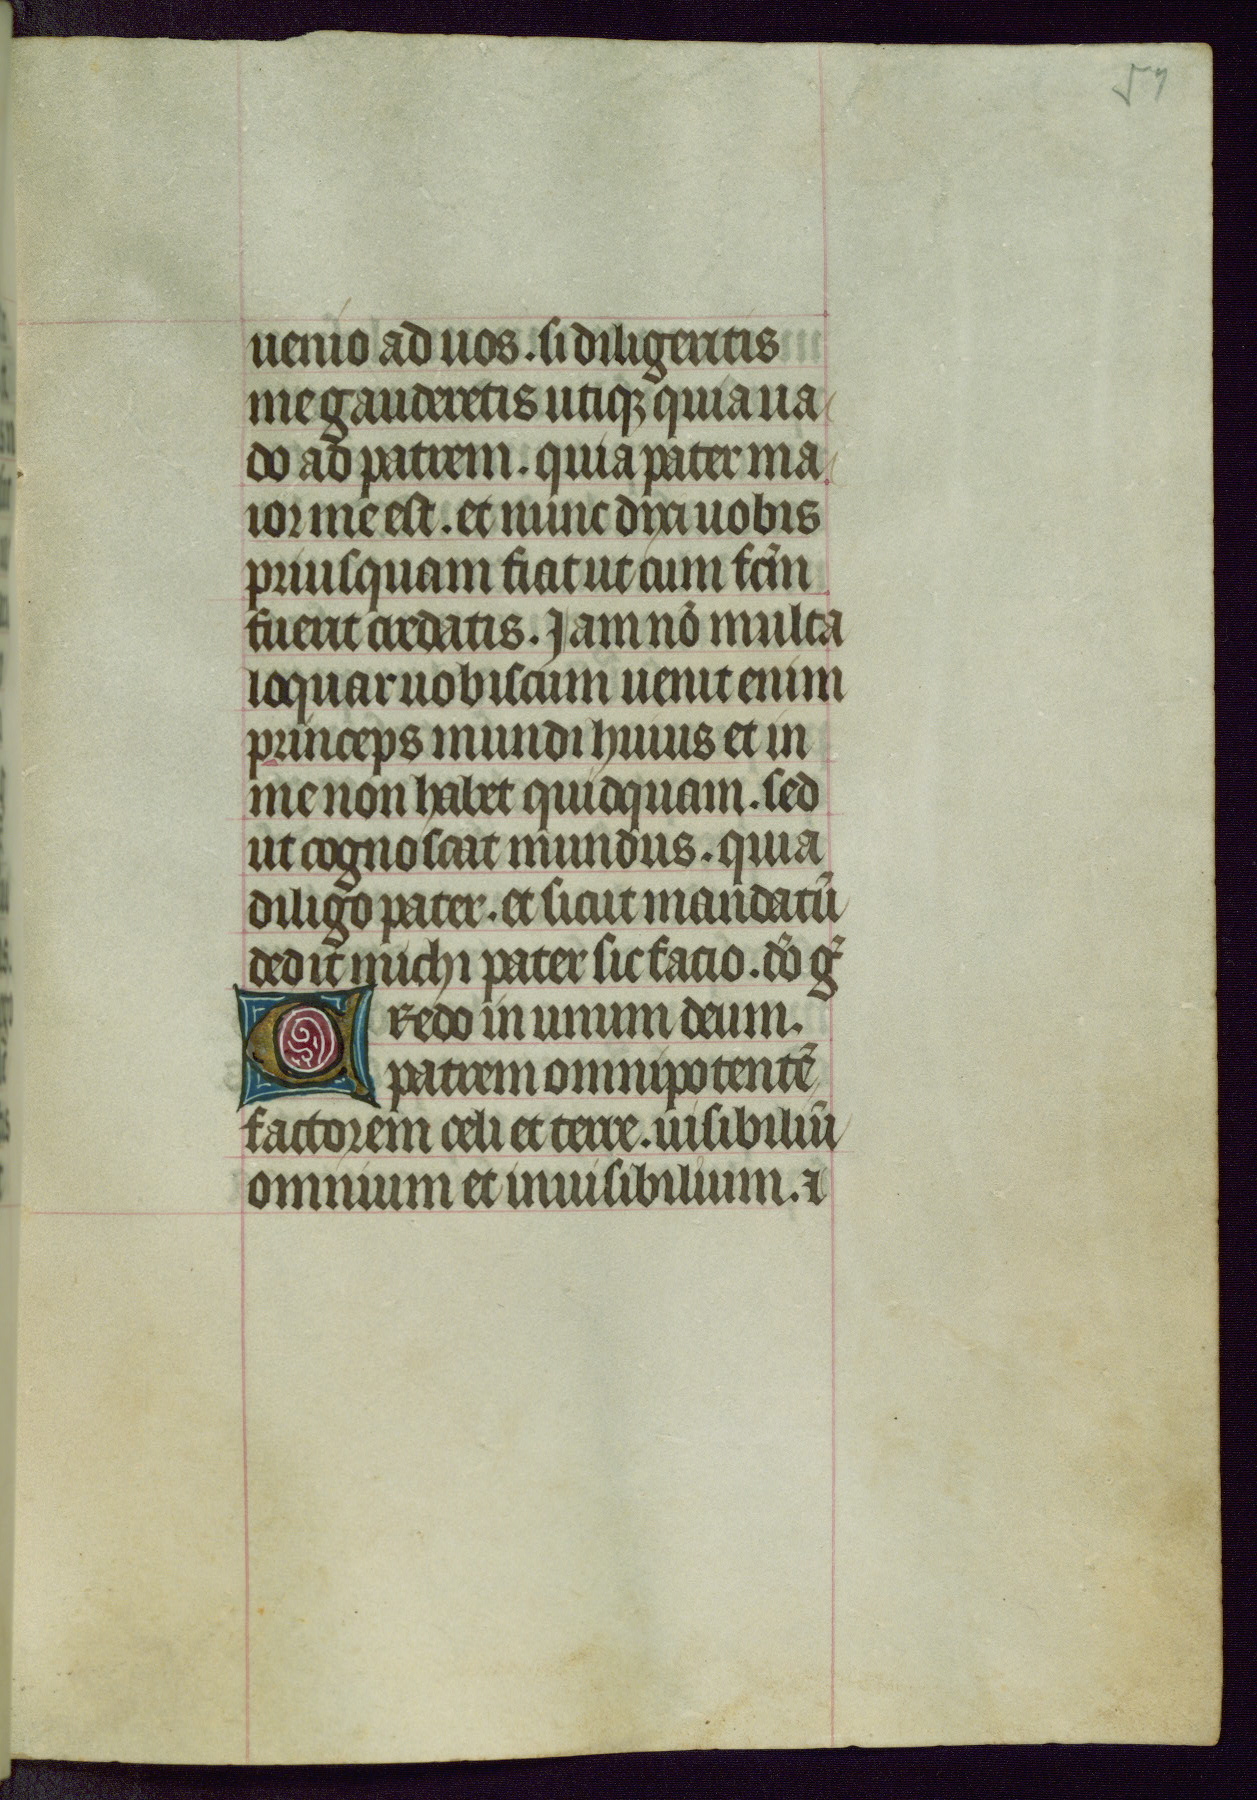 57
uenio ad uos. si diligeritis
me gauderetis utiqꝫ quia ua
do ad patrem. quia pater ma
ior me est. et nunc dixi uobis
priusquam fiat ut cum fc̄m
fuerit credatis. Jam nō multa
loquar uobiscum uenit enim
princeps mundi huius et in
me non habet quidquam. sed
ut cognoscat mundus. quia
diligo pater. et sicut mandatū
dedit michi pater sic facio. dō g̃
Credo in unum deum.
patrem omnipotentē
factorem celi et terre. uisibiliū
omnium et inuisibilium. ⁊